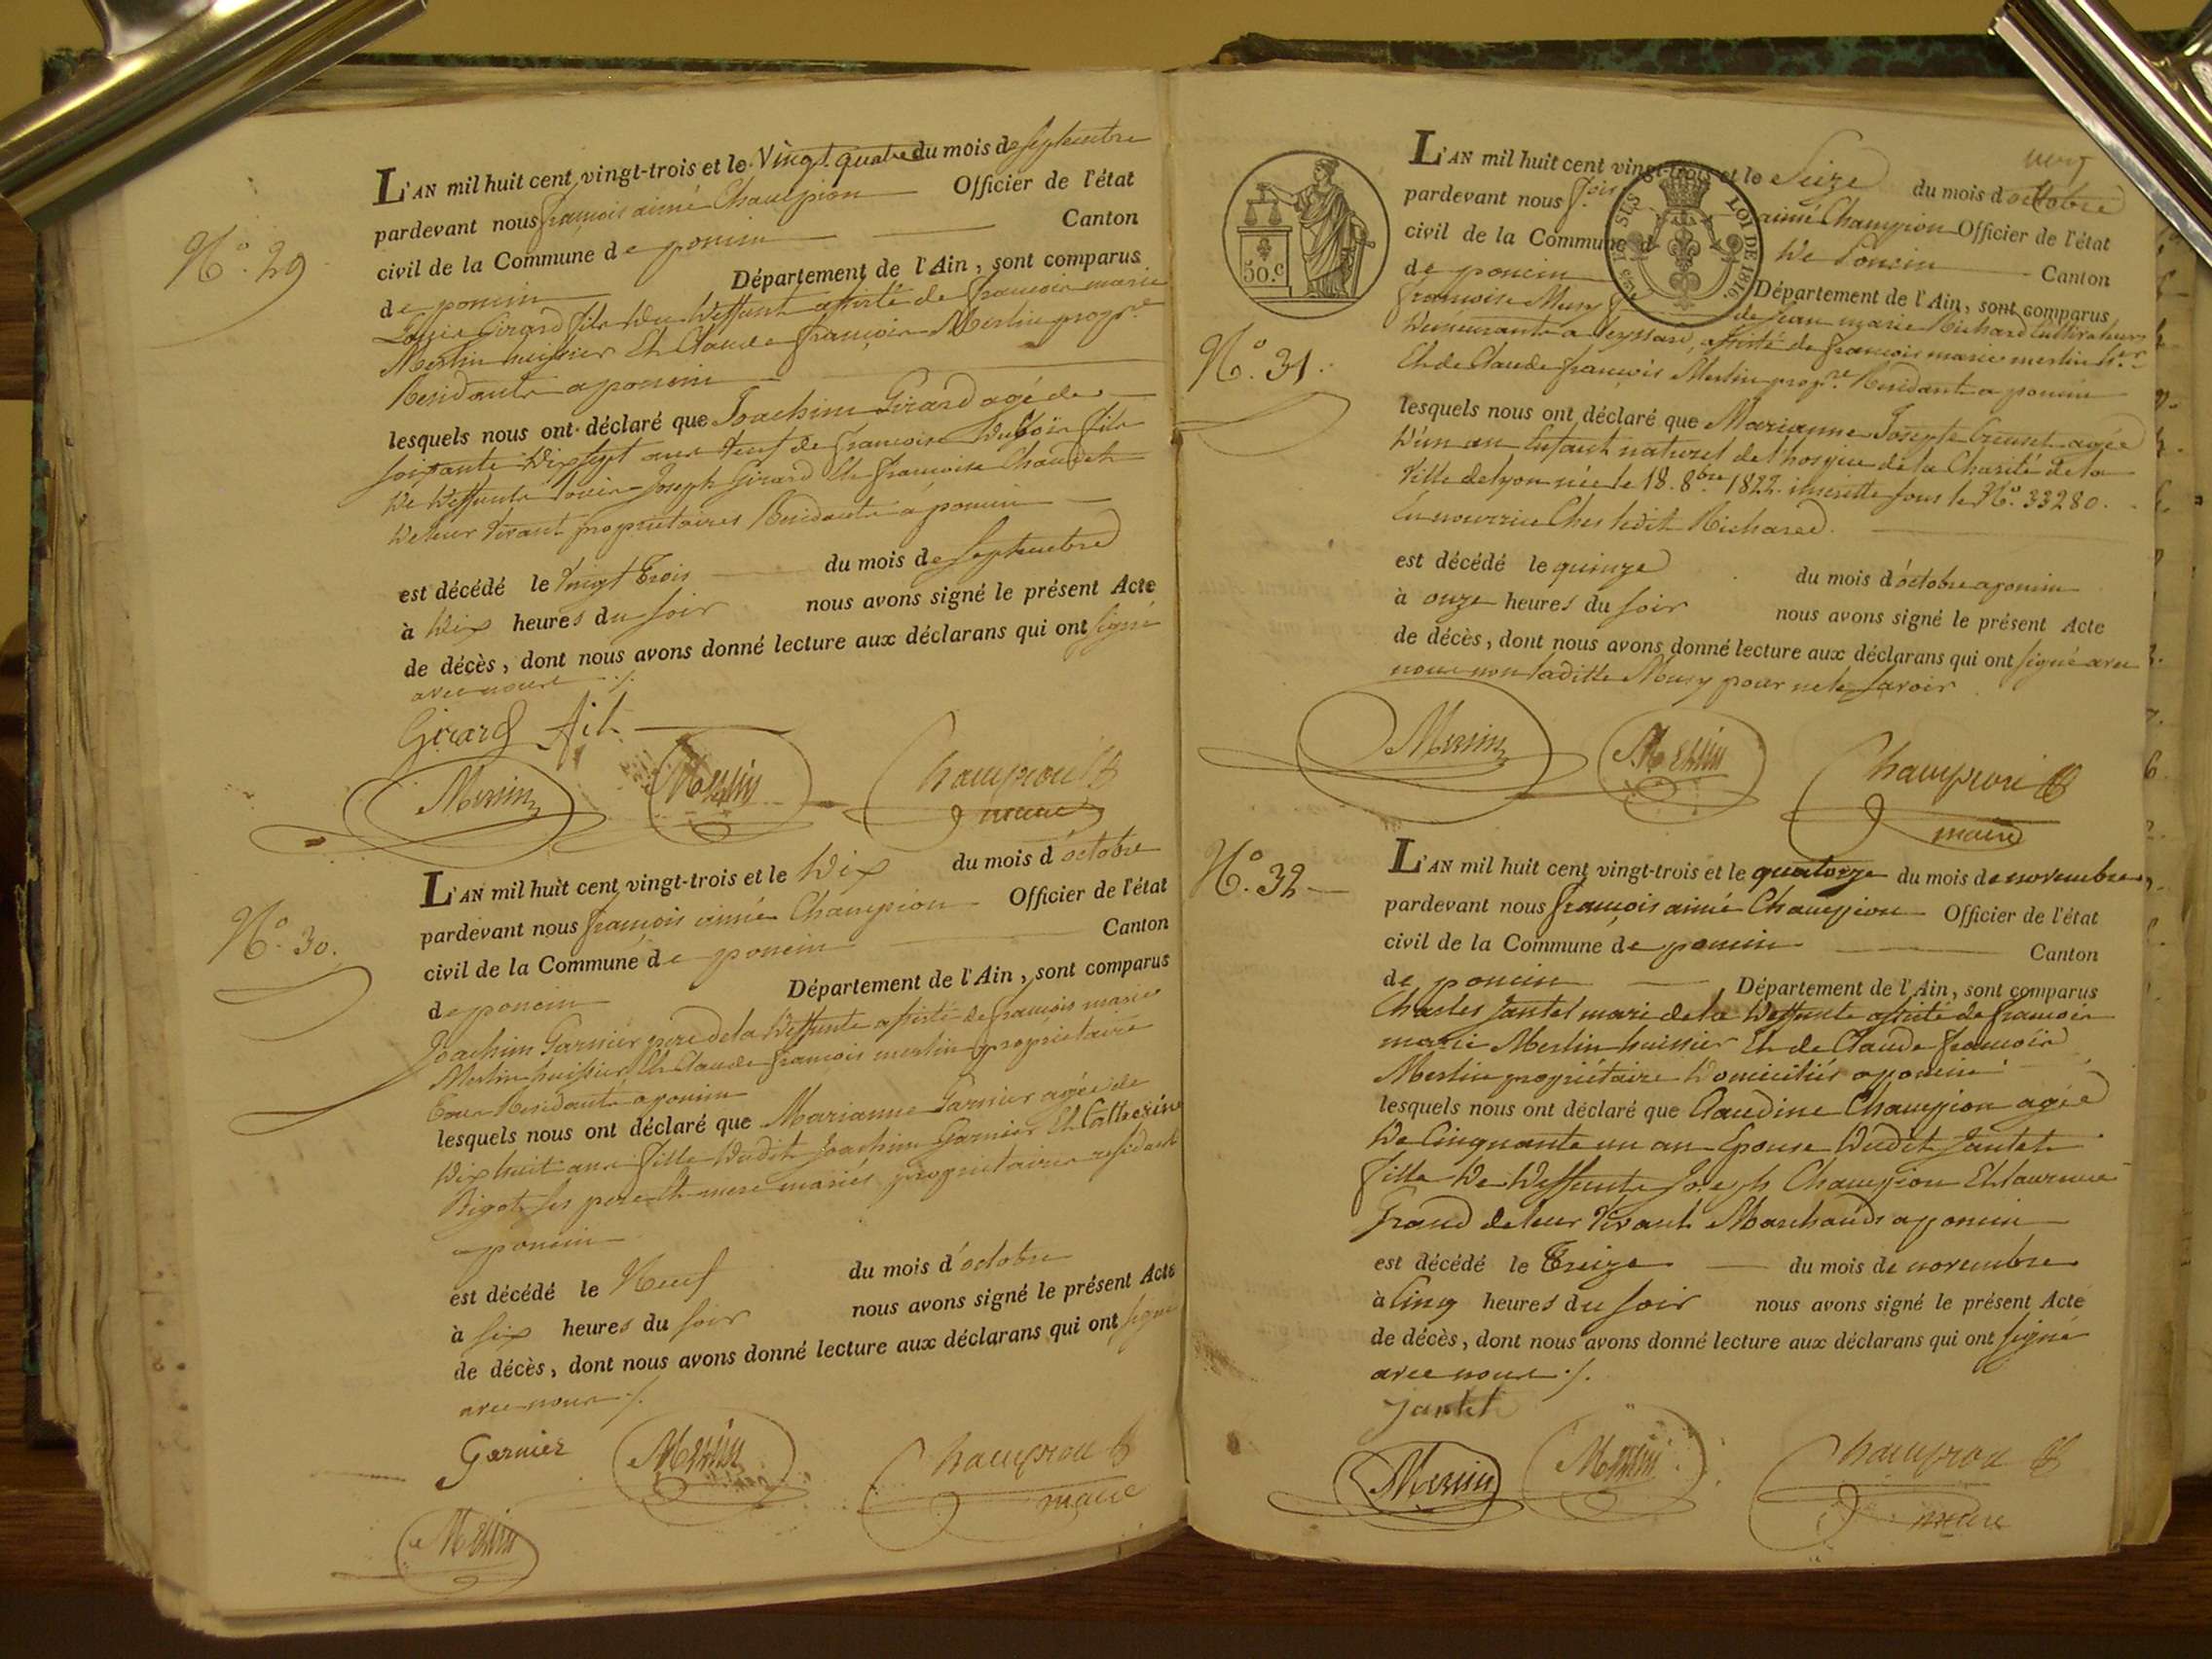 N.o 29
L'AN mil huit cent vingt-trois et le Vingt quatre du mois de septembre
pardevant nous françois aimé Champion Officier de l'état
civil de la Commune de poncin Canton
de poncin Département de l'Ain, sont comparus
Louis Girard fils du deffunt assisté de françois marie
Merlin huissier Et Claude françois Merlin propre
Residants a poncin
lesquels nous ont déclaré que Joachim Girard agé de
soixante dix sept ans veuf de françoise dubois fils
de deffunts Louis Joseph Girard Et françoise Chaudet
de leur vivant proprietaires Residants a poncin
est décédé le vingt trois du mois de septembre
à dix heures du soir nous avons signé le présent Acte
de décès, dont nous avons donné lecture aux déclarans qui ont signé
avec nous ./.
Girard fils
Merlin Merlin Champion
maire
N.o 30.
L'AN mil huit cent vingt-trois et le dix du mois d'octobre
pardevant nous françois aimé Champion Officier de l'état
civil de la Commune de poncin Canton
de poncin Département de l'Ain, sont comparus
Joachim Garnier pere de la deffunte assisté de françois marie
Merlin huissier Et Claude françois merlin proprietaire
tous Residants a poncin
lesquels nous ont déclaré que Marianne Garnier agée de
dix huit ans fille dudit Joachim Garnier Et Catherine
Bigot ses pere et mere mariés proprietaires residants
a poncin
est décédé le Neuf du mois d'octobre
à six heures du soir nous avons signé le présent Acte
de décès, dont nous avons donné lecture aux déclarans qui ont signé
avec nous ./.
Garnier Merlin Champion
maire
Merlin
50.c
LOI DE 1816.
N.o 31.
L'AN mil huit cent vingt-trois et le Seize du mois d'octobre
pardevant nous f.ois aimé Champion Officier de l'état
civil de la Commune de Poncin Canton
de poncin Département de l'Ain, sont comparus
françoise Musy de Jean marie Richard Cultivateurs
demeurants a Leyssard, assisté de françois marie merlin h.er
Et de Claude françois Merlin prop.re Residants a poncin
lesquels nous ont déclaré que Marianne Josepte Creuset agée
d'un an Enfant naturel de l'hospice de la Charité de la
Ville de lyon née le 18. 8bre 1822. inscritte sous le N.o 33280.
En nourrice Ches ledit Richard.
est décédé le quinze du mois d'octobre a poncin
à onze heures du soir nous avons signé le présent Acte
de décès, dont nous avons donné lecture aux déclarans qui ont signé avec
nous non laditte Musy pour ne le savoir
Merlin Merlin Champion
maire
N.o 32
L'AN mil huit cent vingt-trois et le quatorze du mois de novembre
pardevant nous françois aimé Champion Officier de l'état
civil de la Commune de poncin Canton
de poncin Département de l'Ain, sont comparus
Charles Jantet mari de la deffunte assisté de françois
marie Merlin huissier Et de Claude françois
Merlin propriétaire domiciliés a poncin
lesquels nous ont déclaré que Claudine Champion agée
de Cinquante un an Epouse dudit Jantet
fille de deffunts Joseph Champion Et laurence
Grand de leur vivant Marchands a poncin
est décédé le treize du mois de novembre
à Cinq heures du soir nous avons signé le présent Acte
de décès, dont nous avons donné lecture aux déclarans qui ont signé
avec nous ./.
Jantet
Merlin Merlin Champion
maire